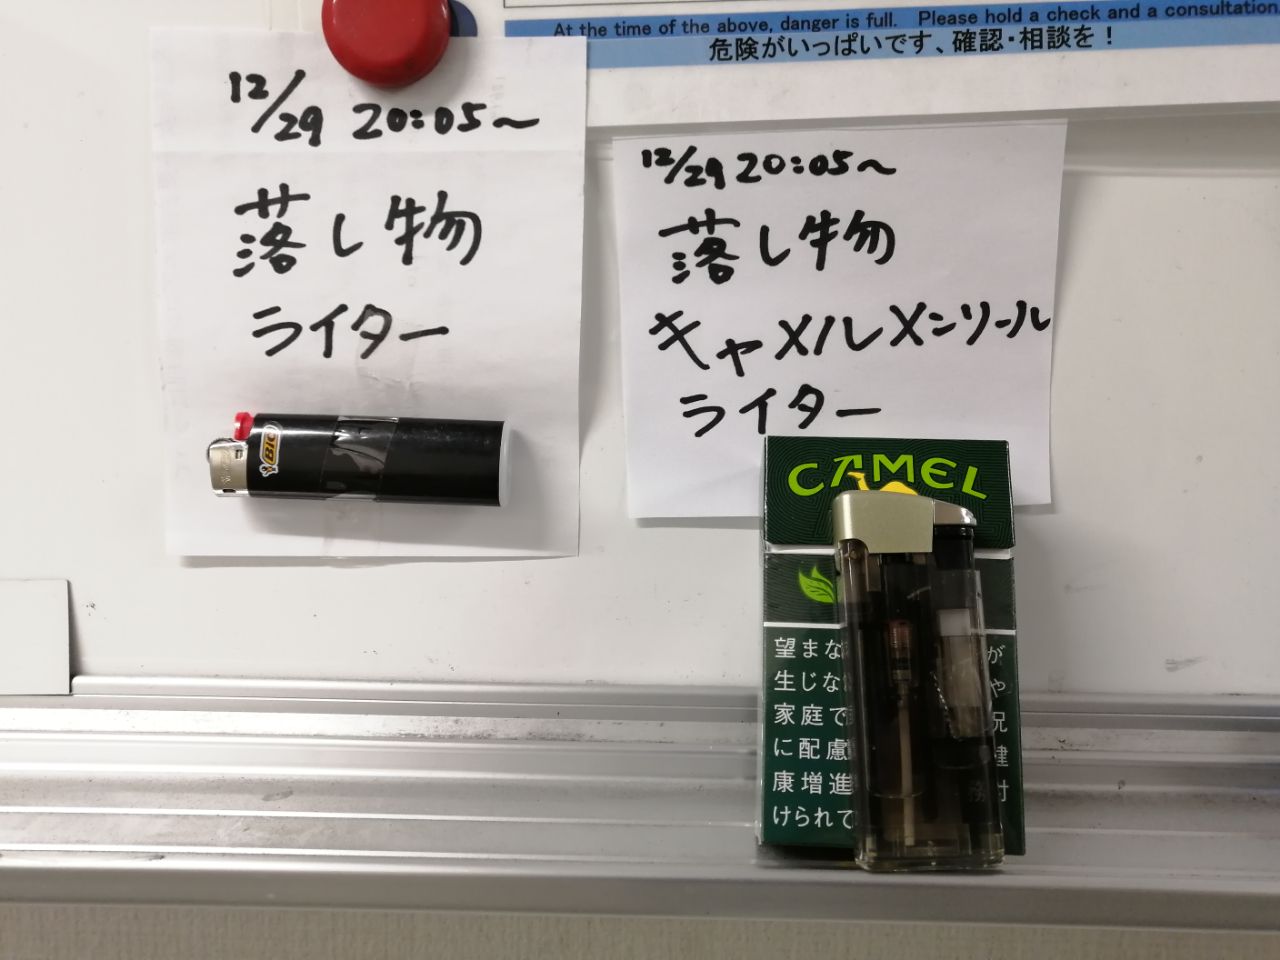 At the time of the above, danger is full. Please hold a check and a consultation
危険がいっぱいです、確認・相談を！
12/29 20:05～
落し物
ライター
BIC
12/29 20:05～
落し物
キャメルメンソール
ライター
CAMEL
望まな が
生じな や
家庭で 況
に配慮 健
康増進 務付
けられて